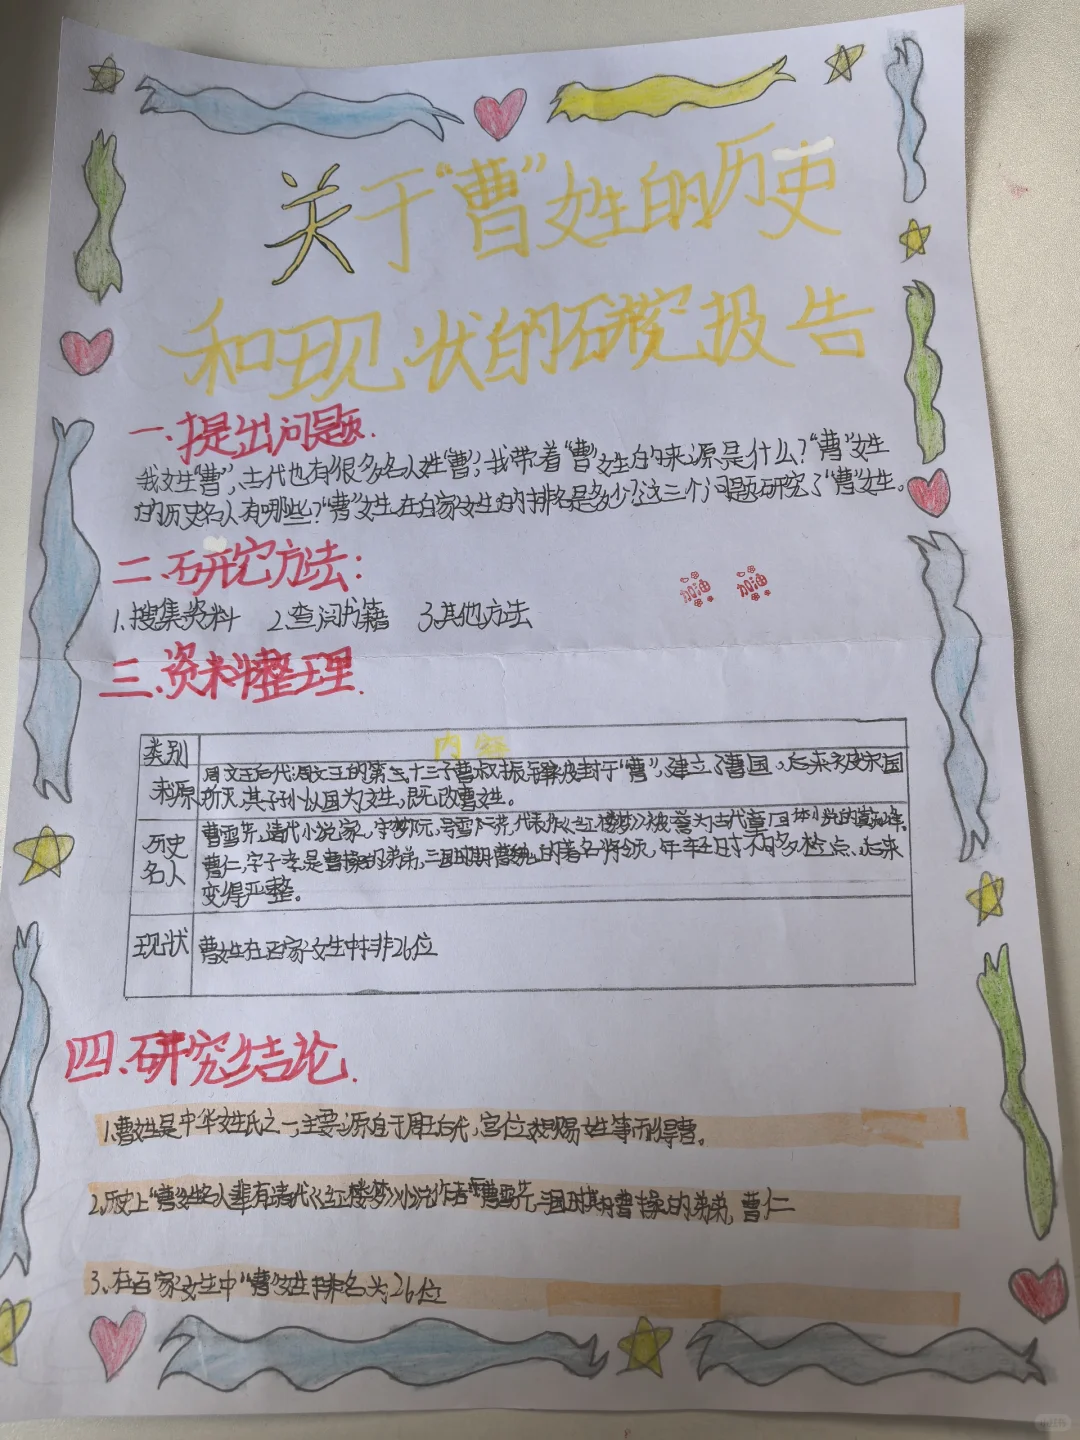 关于“曹”姓的历史
和现状的研究报告
一.提出问题.
我姓“曹”,古代也有很多名人姓“曹”,我带着“曹”姓的来源是什么?“曹”姓
的历史名人有哪些?“曹”姓在百家姓的排名是多少?这三个问题研究了“曹”姓。
二.研究方法:
1.搜集资料 2.查阅书籍 3.其他方法
加油 加油
三.资料整理.
类别 内容
来源 周文王后代周文王的第 十三子曹叔振铎被封于“曹”,建立了曹国,后来被宋国
所灭,其子孙以国为姓,既改曹姓。
历史名人 曹雪芹,清代小说家,字梦阮,号雪芹,代表作《红楼梦》被誉为古代章回体小说的
曹仁,字子孝,是曹操的弟弟,三国时期曹魏的著名将领,年轻时不多检点,后来
变得严整。
现状 曹姓在百家姓中排26位
四.研究结论.
1.曹姓是中华姓氏之一,主要源自于周王后代,官位 赐姓等而得曹。
2.历史上“曹”姓名人 有清代《红楼梦》小说作者 曹雪芹三国时期曹操的弟弟,曹仁
3.在百家姓中“曹”姓排名为26位
小红书